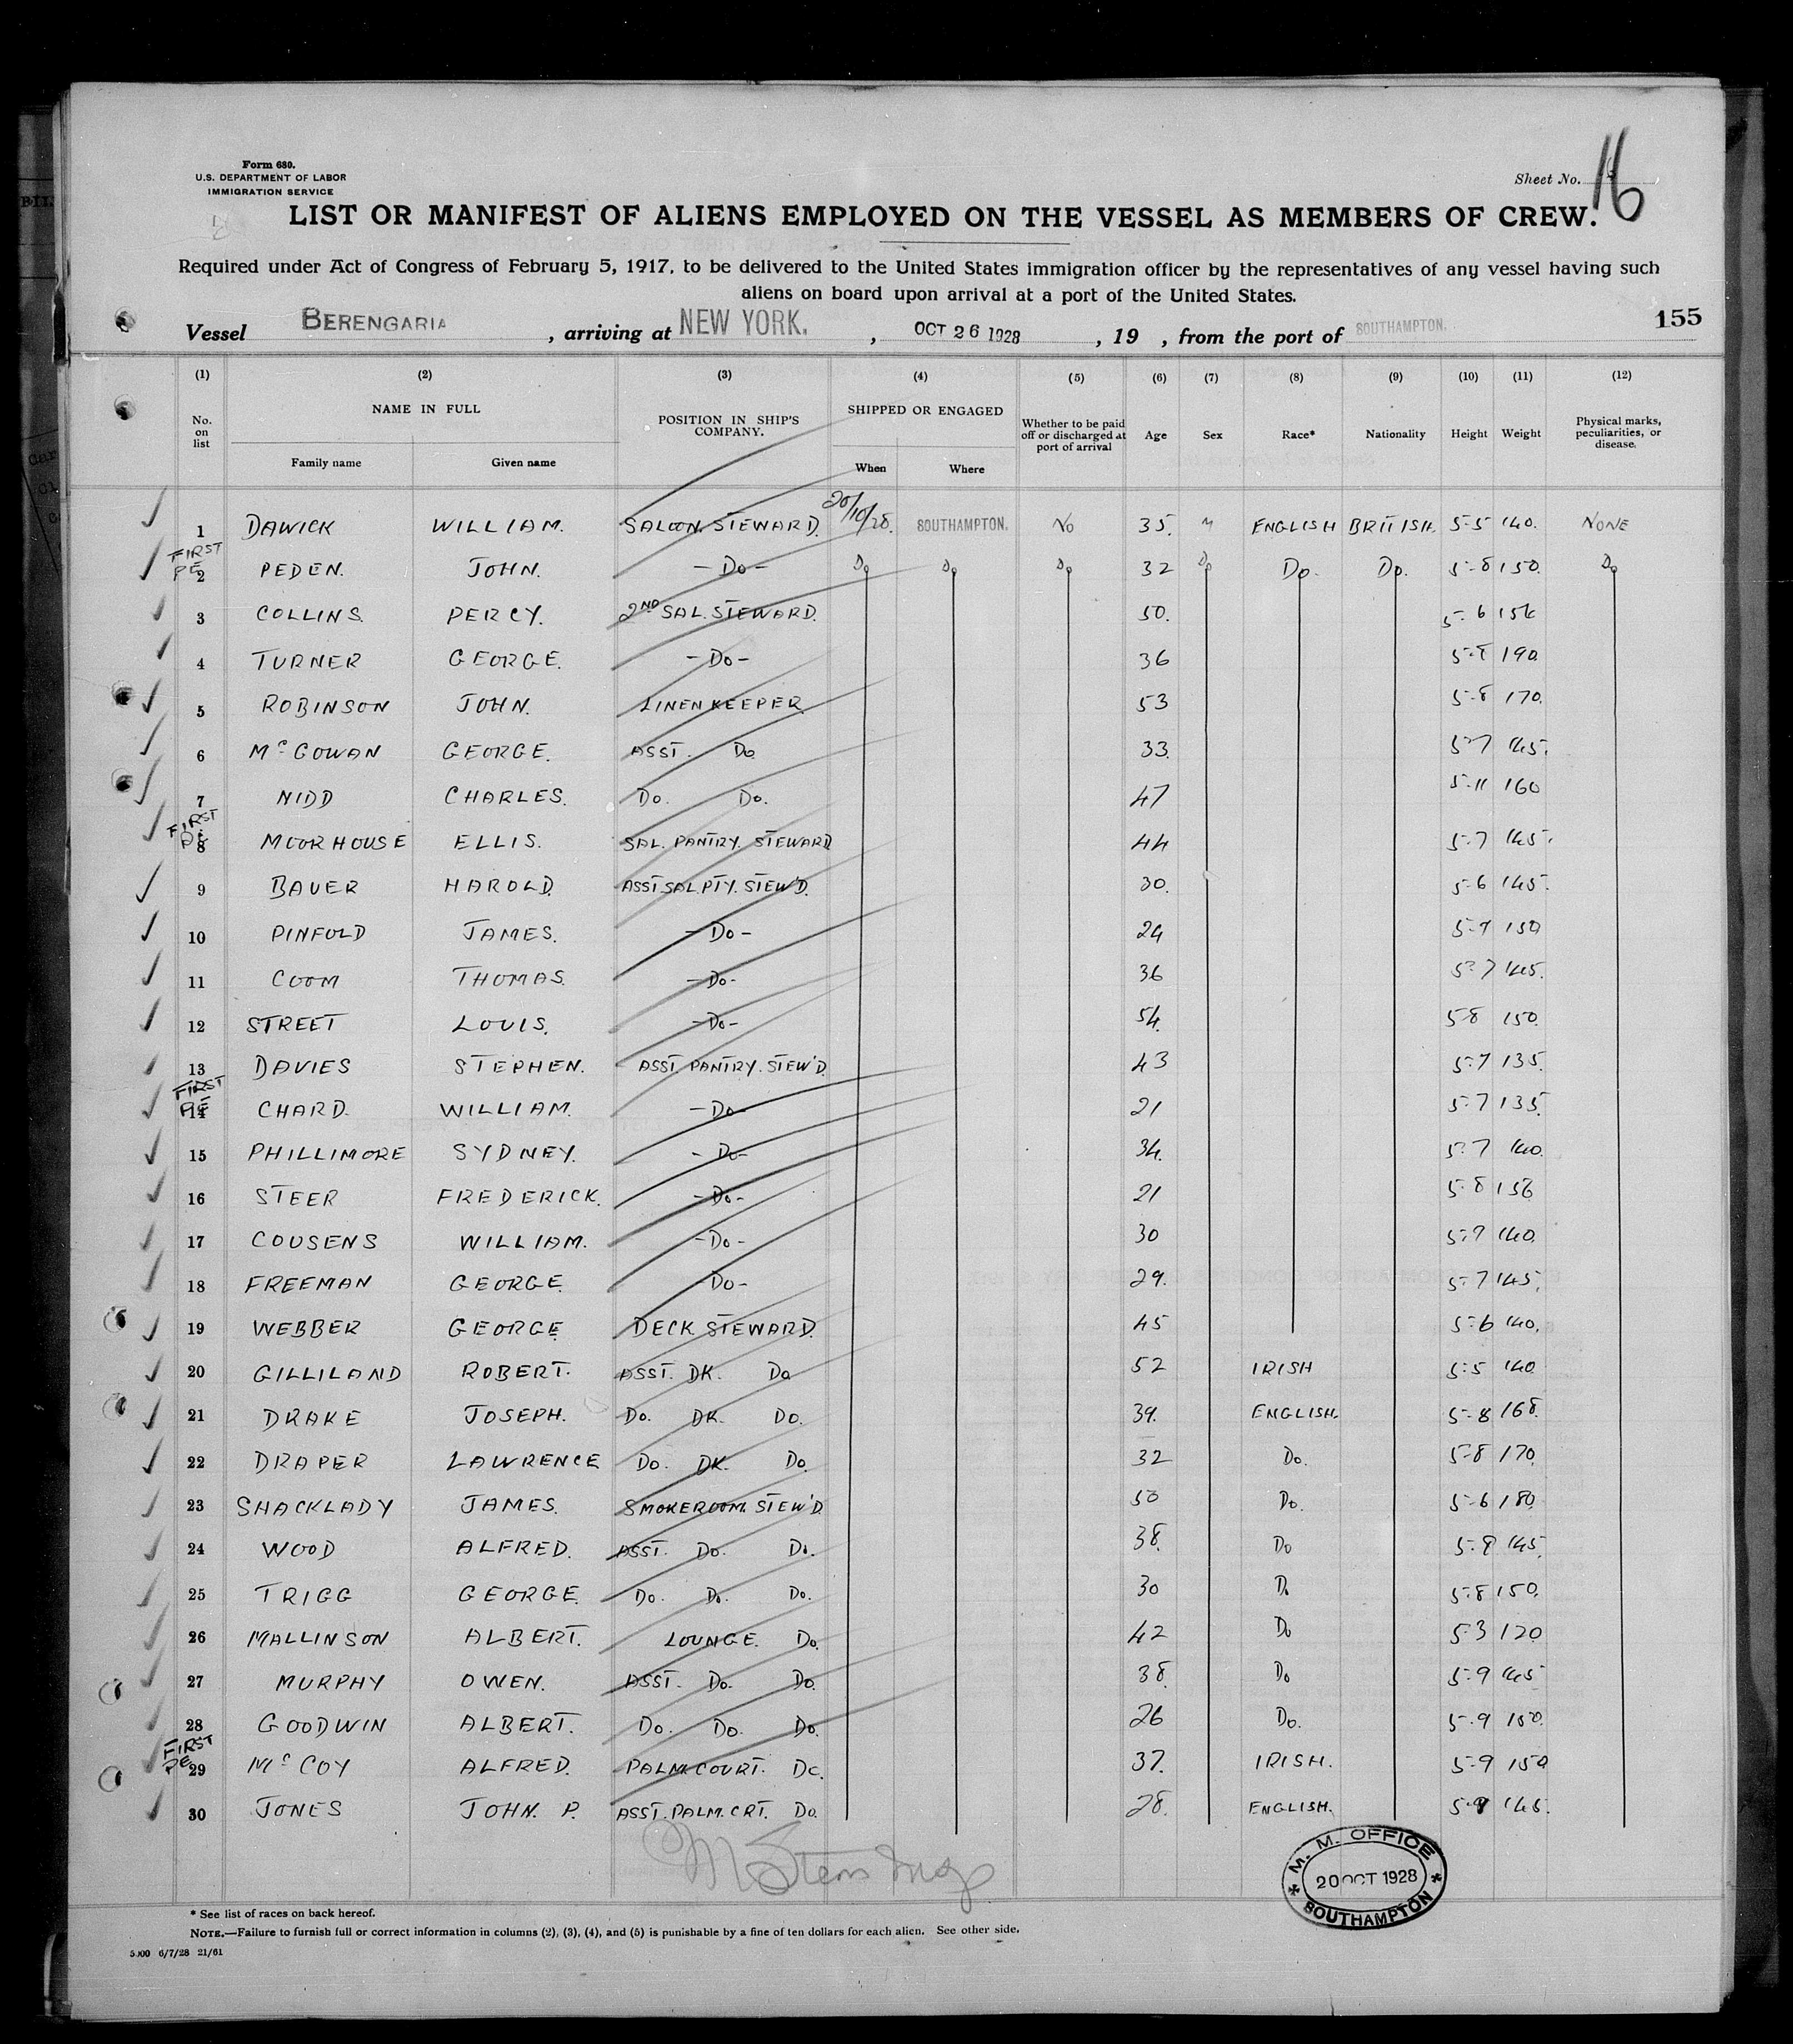 Form 680.
U.S. DEPARTMENT OF LABOR
IMMIGRATION SERVICE
Sheet No. 16
LIST OR MANIFEST OF ALIENS EMPLOYED ON THE VESSEL AS MEMBERS OF CREW.
Required under Act of Congress of February 5, 1917, to be delivered to the United States immigration officer by the representatives of any vessel having such
aliens on board upon arrival at a port of the United States.
155
Vessel BERENGARIA, arriving at NEW YORK., OCT 26 1928, 19 , from the port of SOUTHAMPTON.
(1) (2) (3) (4) (5) (6) (7) (8) (9) (10) (11) (12)
No. on list NAME IN FULL POSITION IN SHIP'S COMPANY. SHIPPED OR ENGAGED Whether to be paid off or discharged at port of arrival Age Sex Race* Nationality Height Weight Physical marks, peculiarities, or disease.
Family name Given name When Where
1 DAWICK WILLIAM. SALOON STEWARD. 20/10/28. SOUTHAMPTON. No 35. M ENGLISH BRITISH. 5-5 140. NONE
FIRST PE 2 PEDEN. JOHN. -Do- Do Do Do 32 Do Do. Do. 5-8 150. Do
3 COLLINS. PERCY. 2ND SAL. STEWARD. 50. 5-6
4 TURNER GEORGE. -Do- 36 5-8 190.
5 ROBINSON JOHN. LINENKEEPER 53 5-8 170.
6 Mc GOWAN GEORGE. ASST. Do 33. 5-7 145.
7 NIDD CHARLES. Do. Do. 47 5-11 160
FIRST PE 8 MOORHOUSE ELLIS. SAL. PANTRY. STEWARD 44 5-7 145.
9 BAUER HAROLD. ASST SAL. PTY. STEW'D. 30. 5-6 145.
10 PINFOLD JAMES. -Do- 24 5-9 150
11 COOM THOMAS. -Do- 36 5-7 145.
12 STREET LOUIS. -Do- 54. 5-8 150.
13 DAVIES STEPHEN. ASST. PANTRY. STEW'D. 43 5-7 135.
FIRST PE 14 CHARD. WILLIAM. -Do- 21 5-7 135.
15 PHILLIMORE SYDNEY. -Do- 34. 5-7 140.
16 STEER FREDERICK. -Do- 21 5-8
17 COUSENS WILLIAM. -Do- 30 5-9 140.
18 FREEMAN GEORGE. Do- 29. 5-7 145.
19 WEBBER GEORGE DECK STEWARD. 45 5-6 140.
20 GILLILAND ROBERT. ASST. DK. Do 52 IRISH 5-5 140.
21 DRAKE JOSEPH. Do. DK. Do. 39. ENGLISH. 5-8 168.
22 DRAPER LAWRENCE Do. DK. Do. 32 Do. 5-8 170.
23 SHACKLADY JAMES. SMOKEROOM. STEW'D 50 Do. 5-6 180.
24 WOOD ALFRED. ASST. Do. Do. 38. Do 145.
25 TRIGG GEORGE. Do. Do. Do. 30 Do 5-8 150.
26 MALLINSON ALBERT. LOUNGE. Do. 42 Do 5-3 120
27 MURPHY OWEN. ASST. Do. Do. 38. Do 5-9 145
28 GOODWIN ALBERT. Do. Do. Do. 26 Do. 5-9 150.
FIRST PE 29 Mc COY ALFRED. PALM COURT. Do. 37. IRISH. 5-9 150
30 JONES JOHN. P. ASST. PALM. CRT. Do. 28. ENGLISH. 5-9 145.
M. M. OFFICE
20 OCT 1928
SOUTHAMPTON
* See list of races on back hereof.
NOTE.—Failure to furnish full or correct information in columns (2), (3), (4), and (5) is punishable by a fine of ten dollars for each alien. See other side.
5000 6/7/28 21/61